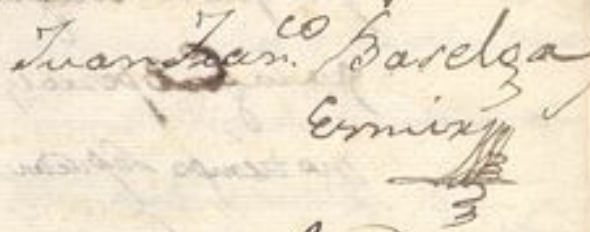 Juan Fran.co Baselga
Ermin